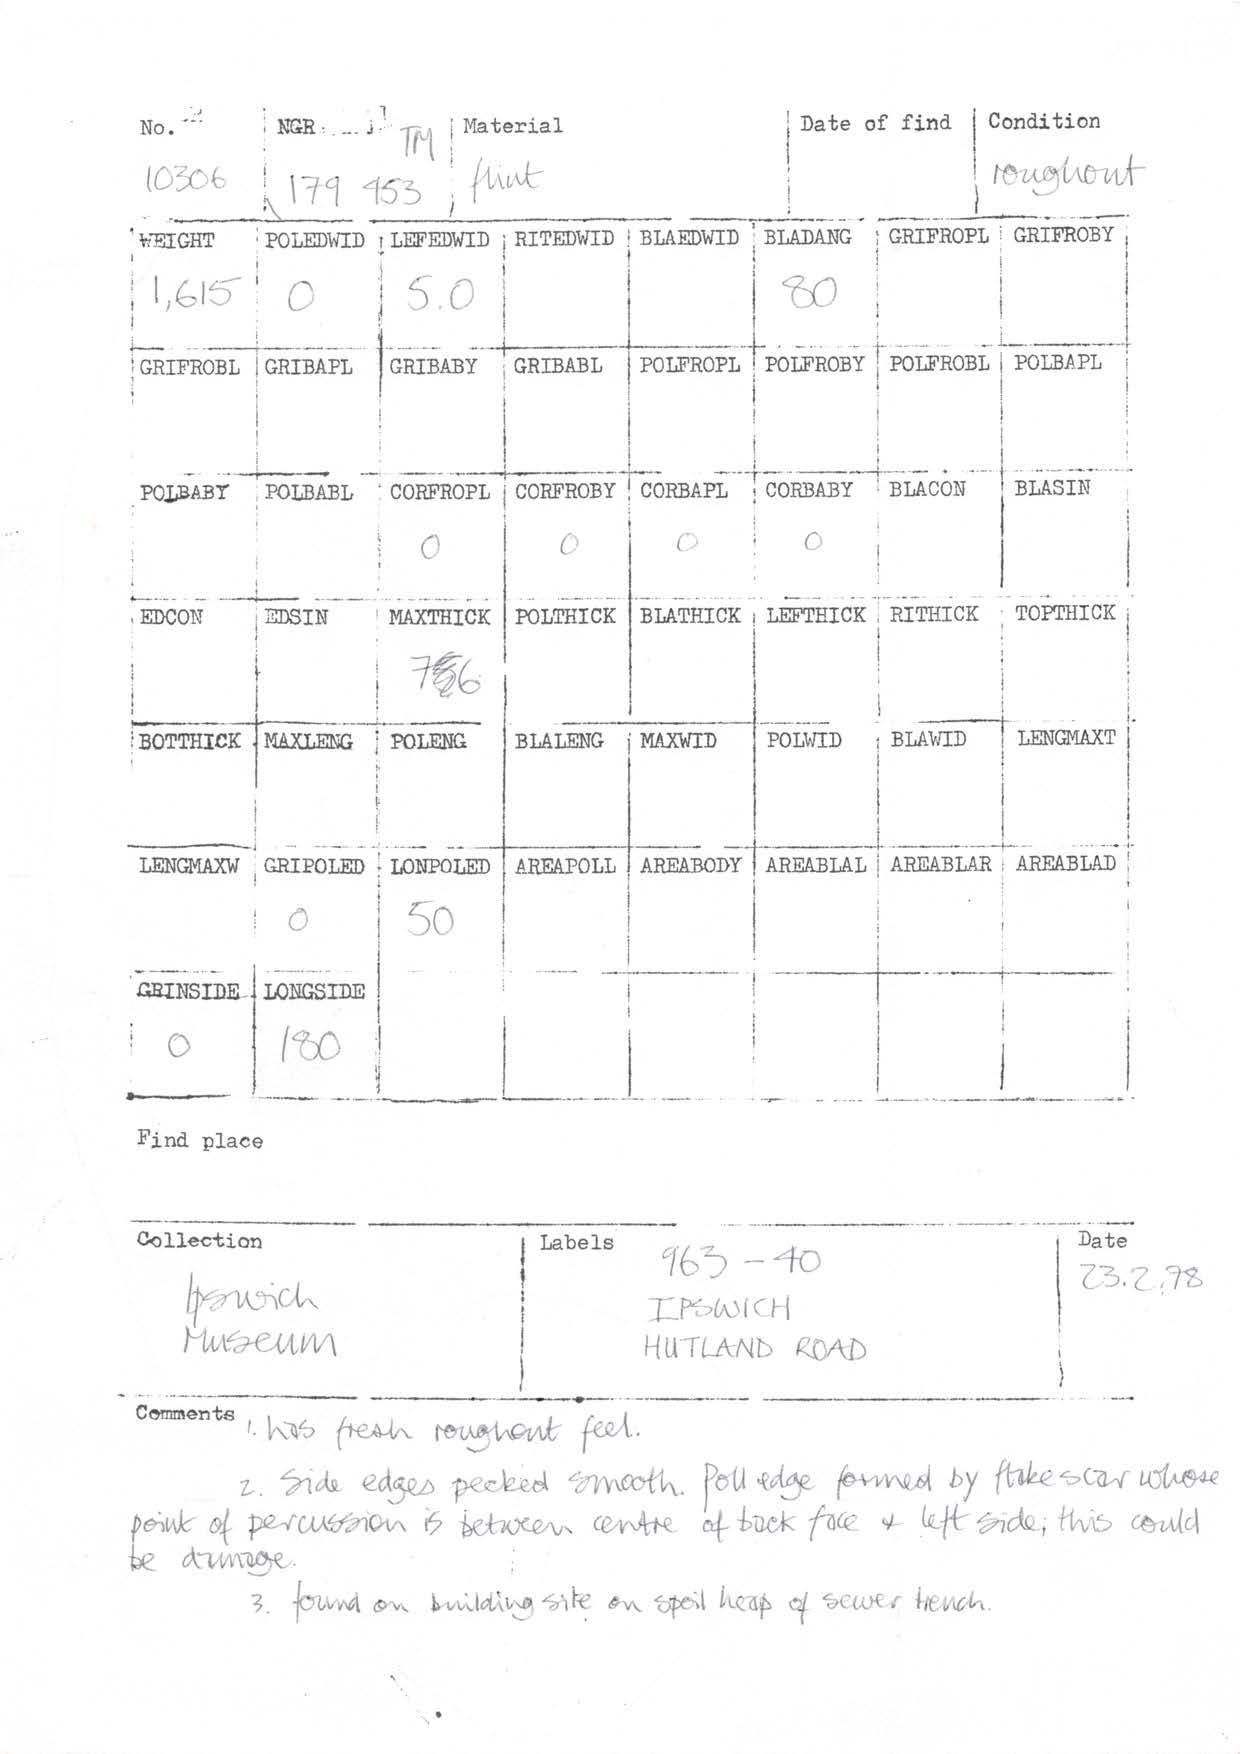 No. NGR Material Date of find Condition
TM
10306 179 453 flint roughout
WEIGHT POLEDWID LEFEDWID RITEDWID BLAEDWID BLADANG GRIFROPL GRIFROBY
1,615 0 5.0 80
GRIFROBL GRIBAPL GRIBABY GRIBABL POLFROPL POLFROBY POLFROBL POLBAPL
POLBABY POLBABL CORFROPL CORFROBY CORBAPL CORBABY BLACON BLASIN
0 0 0 0
EDCON EDSIN MAXTHICK POLTHICK BLATHICK LEFTHICK RITHICK TOPTHICK
76
BOTTHICK MAXLENG POLENG BLALENG MAXWID POLWID BLAWID LENGMAXT
LENGMAXW GRIPOLED LONPOLED AREAPOLL AREABODY AREABLAL AREABLAR AREABLAD
0 50
GRINSIDE LONGSIDE
0 180
Find place
Collection Labels Date
963-40 23.2.78
Ipswich IPSWICH
Museum HUTLAND ROAD
Comments 1. has fresh roughout feel.
2. Side edges pecked smooth. Poll edge formed by flake scar whose
point of percussion is between centre of back face & left side; this could
be damage.
3. found on building site on spoil heap of sewer trench.